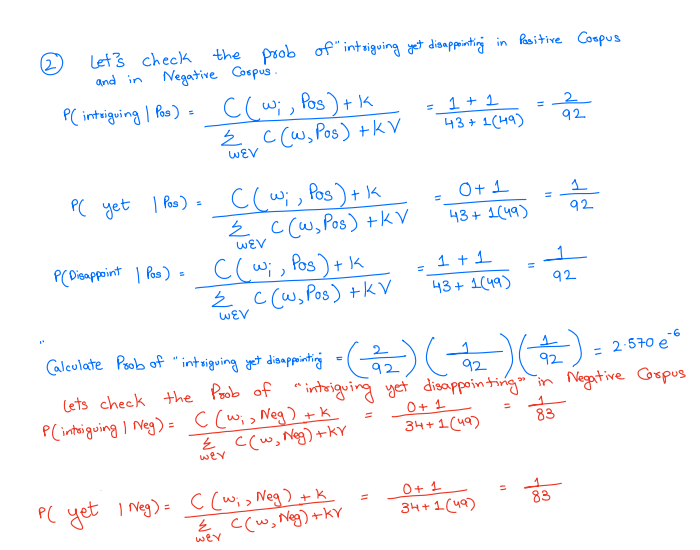 ② Let's check the prob of "intriguing yet disappointing in Positive Corpus
and in Negative Corpus.
P(intriguing | Pos) = C(wi, Pos) + k / Σ w∈V C(w, Pos) + kV = 1 + 1 / 43 + 1(49) = 2 / 92
P( yet | Pos) = C(wi, Pos) + k / Σ w∈V C(w, Pos) + kV = 0 + 1 / 43 + 1(49) = 1 / 92
P(Disappoint | Pos) = C(wi, Pos) + k / Σ w∈V C(w, Pos) + kV = 1 + 1 / 43 + 1(49) = 1 / 92
"
Calculate Prob of "intriguing yet disappointing = (2/92) (1/92) (1/92) = 2.570 e^-6
Lets check the Prob of "intriguing yet disappointing" in Negative Corpus
P(intriguing | Neg) = C(wi, Neg) + k / Σ w∈V C(w, Neg) + kV = 0 + 1 / 34 + 1(49) = 1 / 83
P( yet | Neg) = C(wi, Neg) + k / Σ w∈V C(w, Neg) + kV = 0 + 1 / 34 + 1(49) = 1 / 83